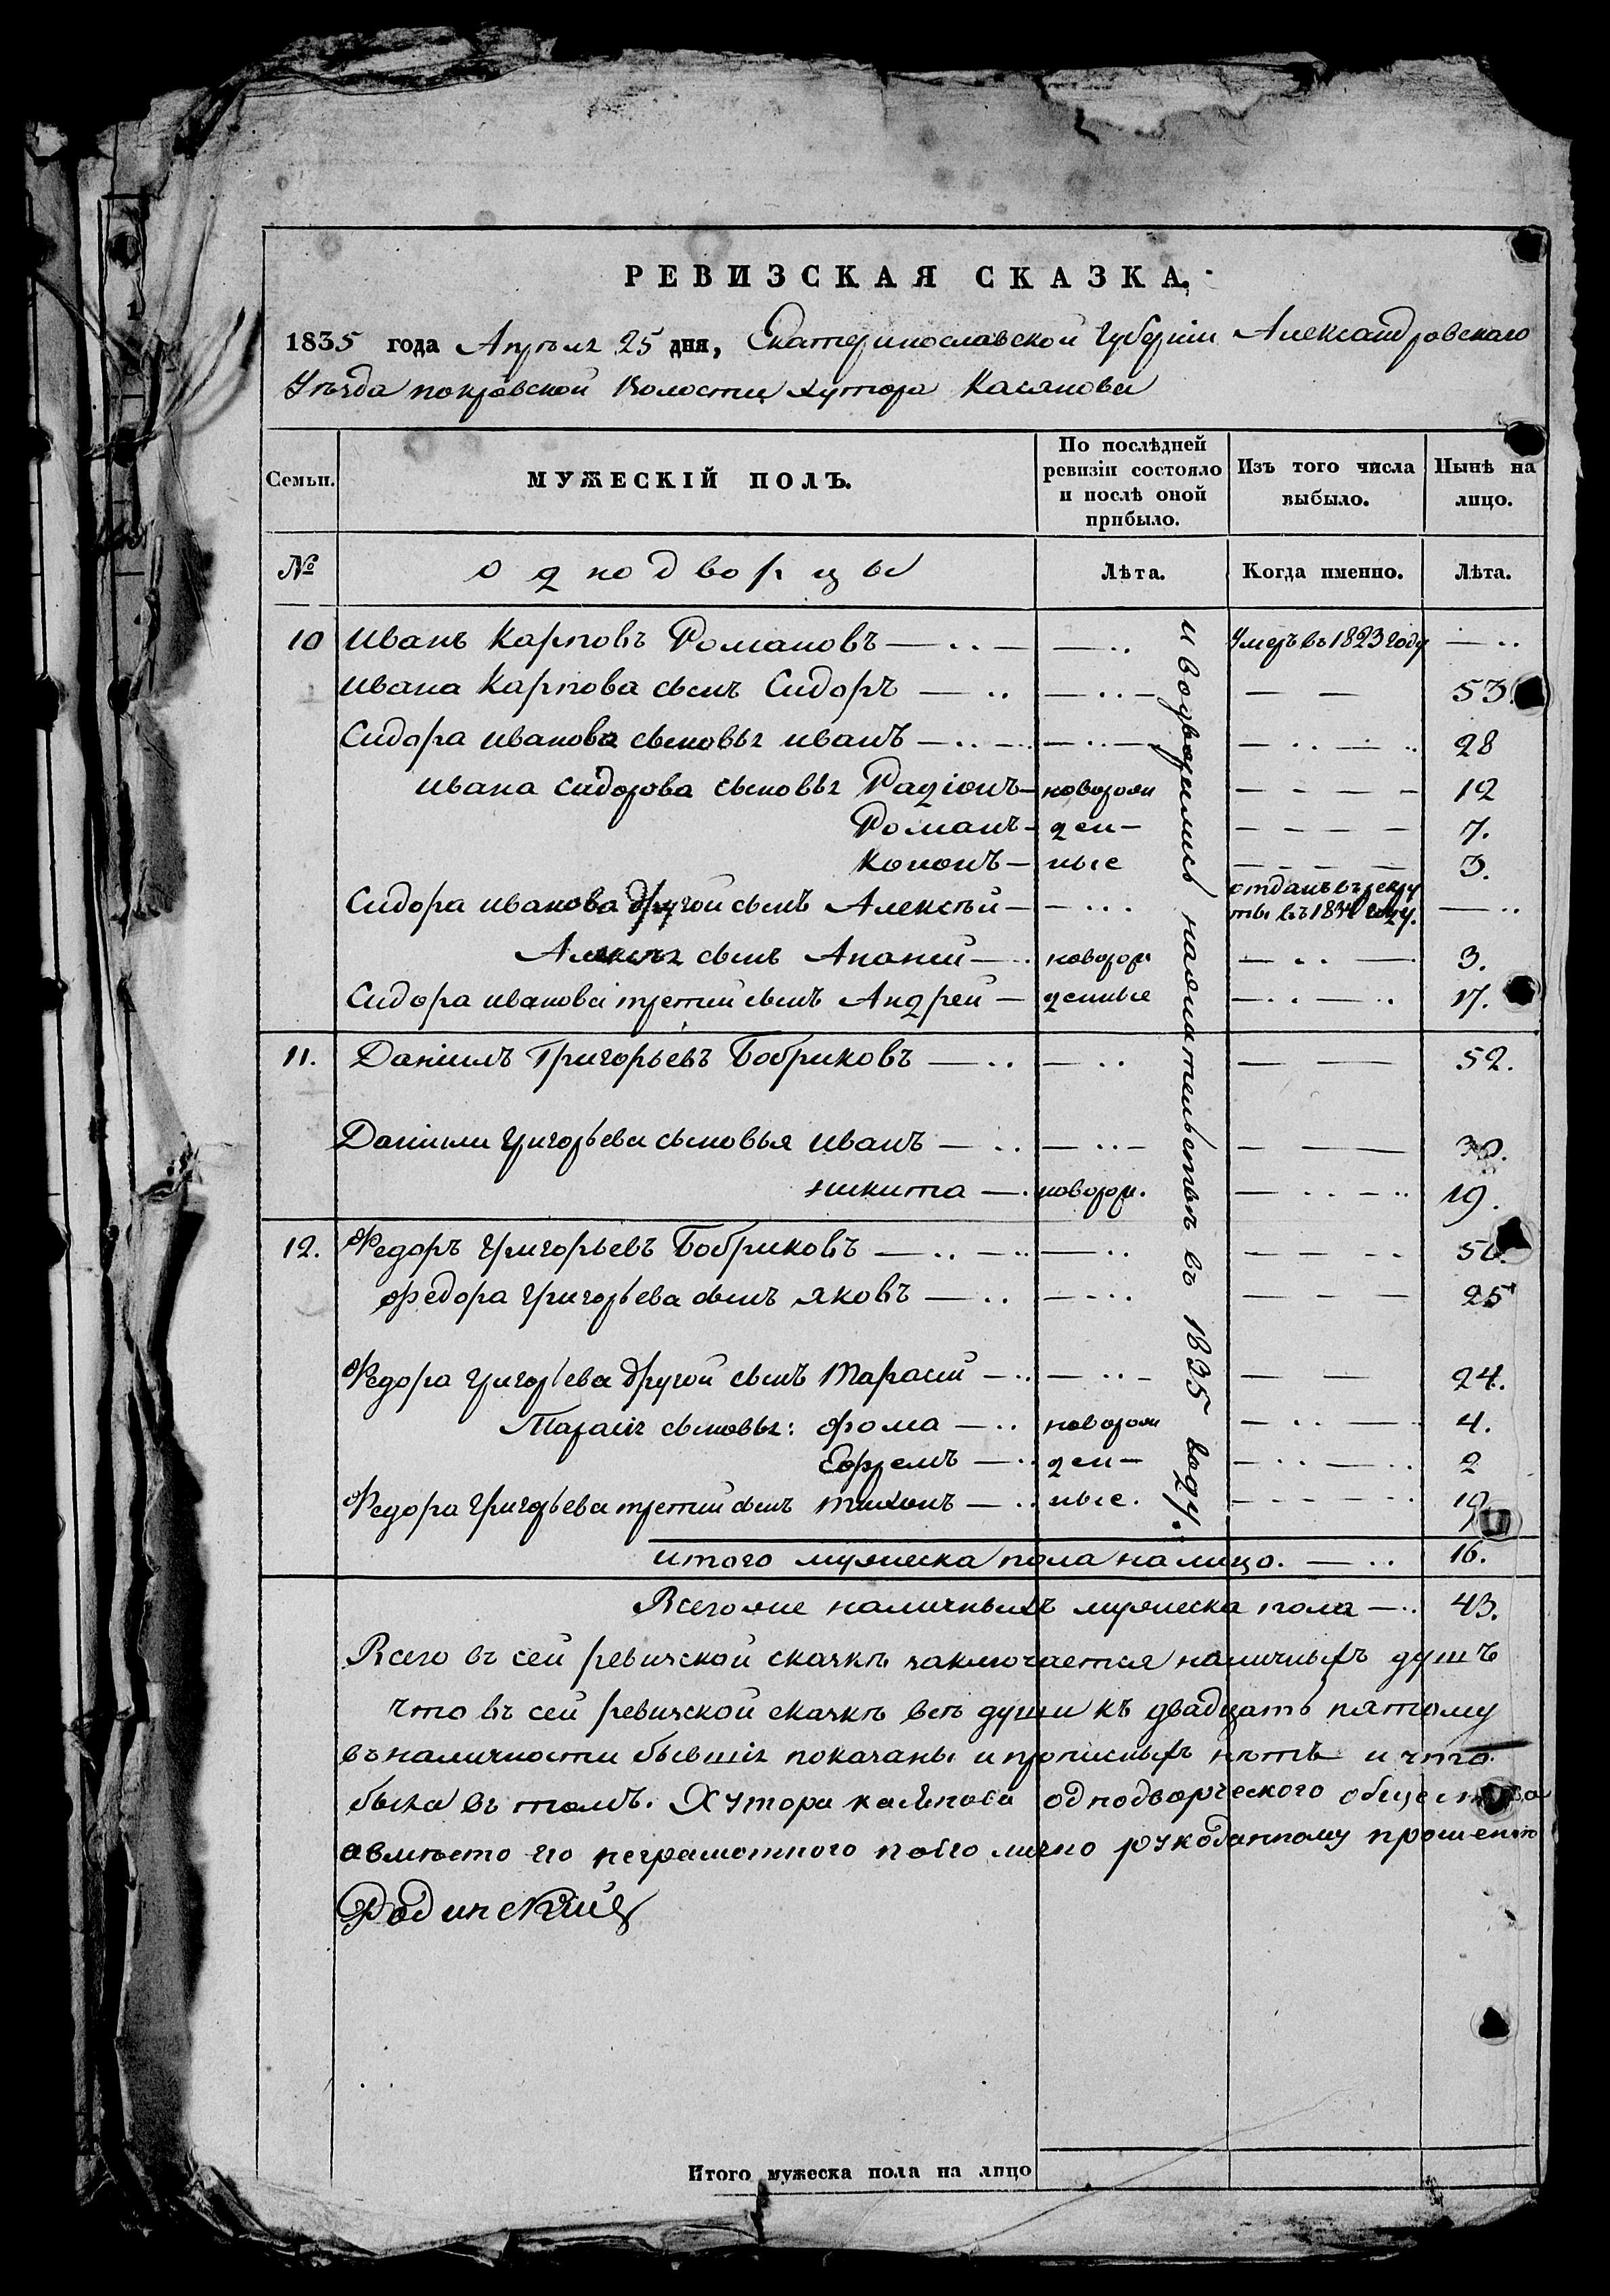 РЕВИЗСКАЯ СКАЗКА.
1835 года Апрѣля 25 дня, Екатеринославской Губерніи Александровскаго
Уѣзда покровской Волости хутора Касянова
Семьи.
МУЖЕСКІЙ ПОЛЪ.
По послѣдней ревизіи состояло и послѣ оной прибыло.
Изъ того числа выбыло.
Нынѣ на лицо.
№ однодворцы Лѣта. Когда именно. Лѣта.
10 Иванъ Карповъ Романовъ — Умеръ въ 1823 году —
Ивана Карпова сынъ Сидоръ — — — 53.
Сидора иванова сыновья иванъ — — — 28
ивана сидорова сыновья Радіонъ — новорож — 12
Романъ — ден — — 7.
Кононъ — ные — 3.
Сидора иванова другой сынъ Алексѣй — — отданъ въ рекруты въ 1834 году. —
сынъ Ананій — новорож — 3.
Сидора иванова третий сынъ Андрей — денные — 17.
11. Даніилъ Григорьевъ Бобриковъ — — — 52.
Даніила григорьева сыновья иванъ — — — 30.
никита — новорож. — 19.
12. Федоръ Григорьевъ Бобриковъ — — — 50.
Федора григорьева сынъ яковъ — — — 25
Федора григорьева другой сынъ Тарасій — — — 24.
Тарасія сыновья: Фома — новорож — 4.
Ефремъ — ден — — 2
Федора григорьева третий сынъ тихонъ — ные. — 19
и водворились на въ 1835 году.
итого мужеска пола на лицо. — 16.
Всего же наличныхъ мужеска пола — 43.
Всего въ сей ревизской сказкѣ заключается наличныхъ душъ
что въ сей ревизской сказкѣ всѣ души къ двадцать пятому
въ наличности бывшія показаны и прописныхъ нѣтъ и что
быха въ томъ. Хутора касьнова однодворческого общества
авмѣсто его неграмотного по его лично рукоданному прошенію
Родинский
Итого мужеска пола на лицо